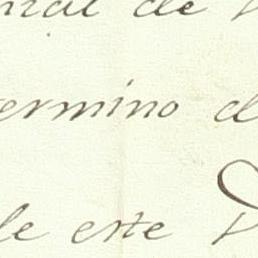 nial de
ermino d
de este D